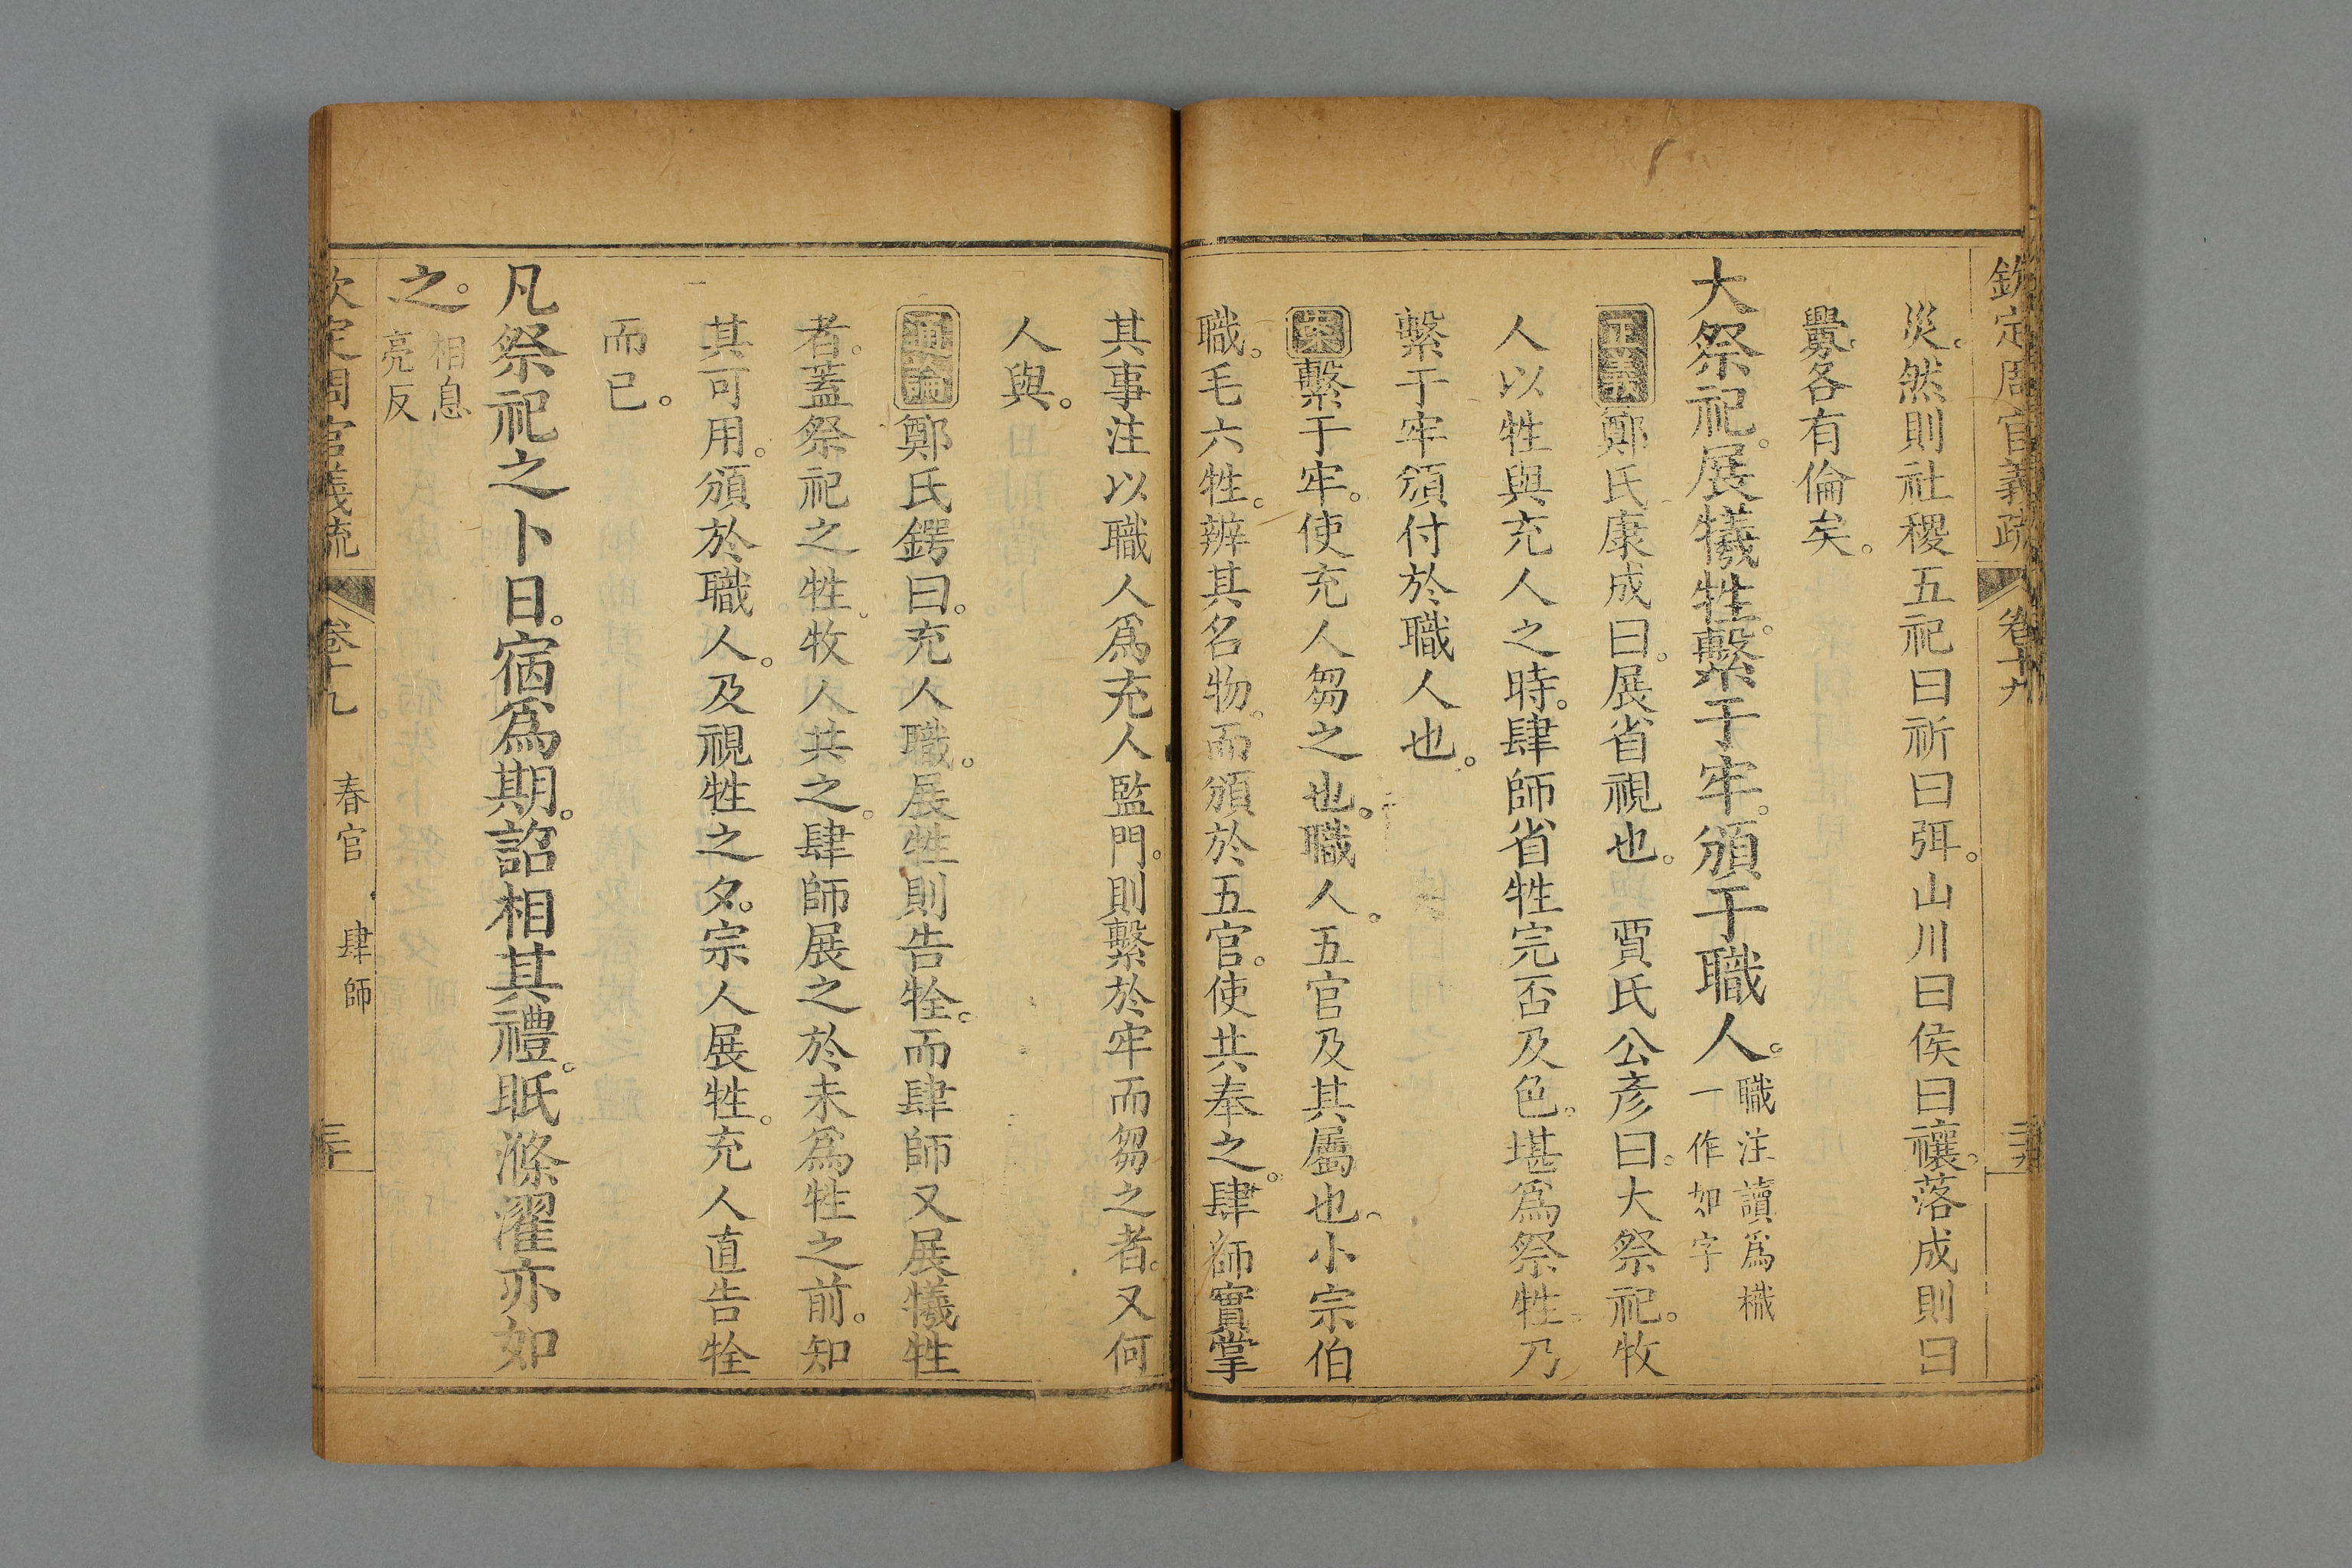 欽定周官義疏 卷十九
災。然則社稷五祀曰祈曰弭。山川曰侯曰禳。落成則曰
釁。各有倫矣。
大祭祀。展犧牲。繫于牢。頒于職人。職注讀爲樴一作如字
正義鄭氏康成曰。展省視也。 賈氏公彥曰。大祭祀。牧
人以牲與充人之時。肆師省牲完否及色。堪爲祭牲。乃
繫于牢頒付於職人也。
案繫于牢。使充人芻之也。職人。五官及其屬也。小宗伯
職。毛六牲。辨其名物。而頒於五官。使共奉之。肆師實掌
其事注以職人爲充人監門。則繫於牢而芻之者。又何
人與。
通論鄭氏鍔曰。充人職。展牲則告牷。而肆師又展犧牲
者。蓋祭祀之牲。牧人共之。肆師展之於未爲牲之前。知
其可用。頒於職人。及視牲之夕。宗人展牲。充人直告牷
而已。
凡祭祀之卜日。宿爲期。詔相其禮。眡滌濯亦如
之。相息亮反
欽定周官義疏 卷十九 春官 肆師 三十